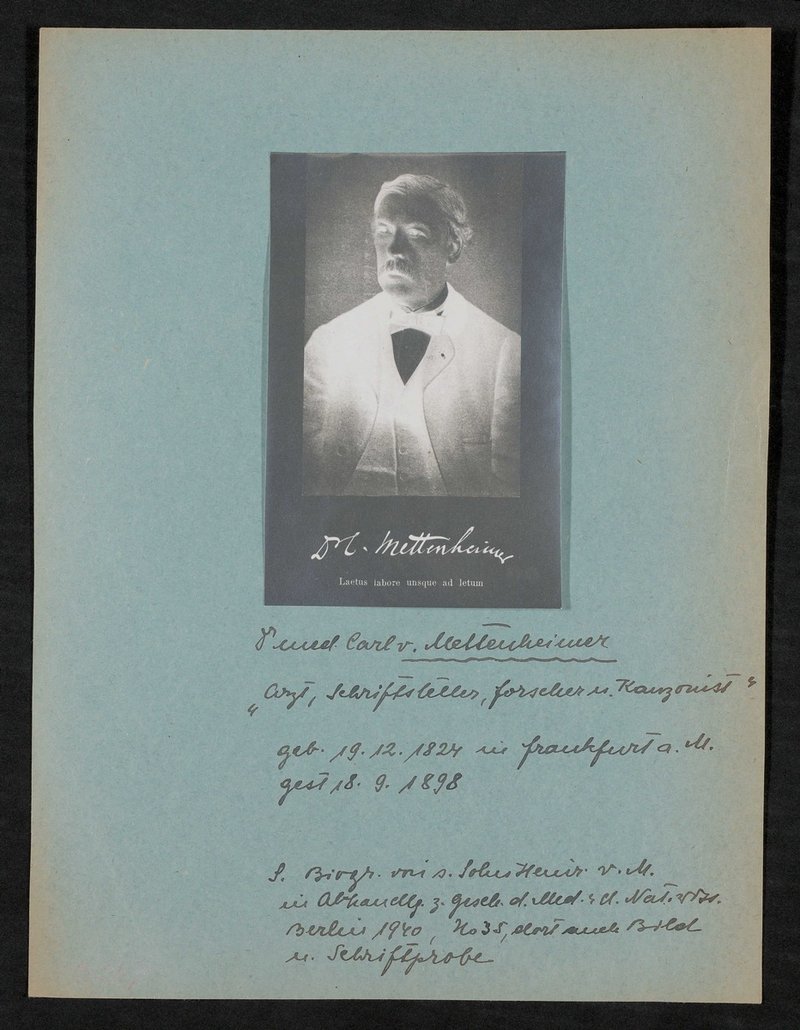 Dr C. Mettenheimer
Laetus labore unsque ad letum
Dr med. Carl v. Mettenheimer
"Arzt, Schriftsteller, Forscher u. Kanzonist"
geb. 19. 12. 1824 in Frankfurt a. M.
gest 18. 9. 1898
S. Biogr. von s. Sohn Heinr. v. M.
in Abhandlg. z. Gesch. d. Med. u. d. Nat. wiss.
Berlin 1940, No 35, dort auch Bild
u. Schriftprobe